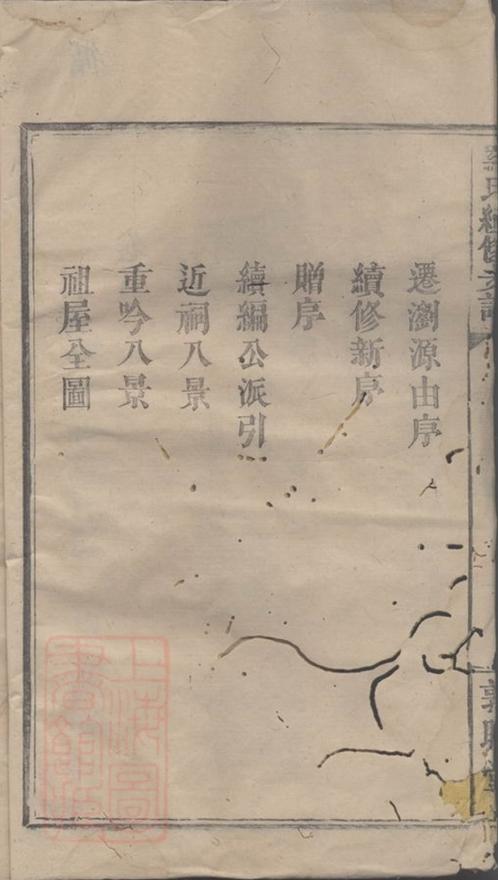 遷瀏源由序
續修新序
贈序
續編公派引
近祠八景
重吟八景
祖屋全圖
上海圖書館藏